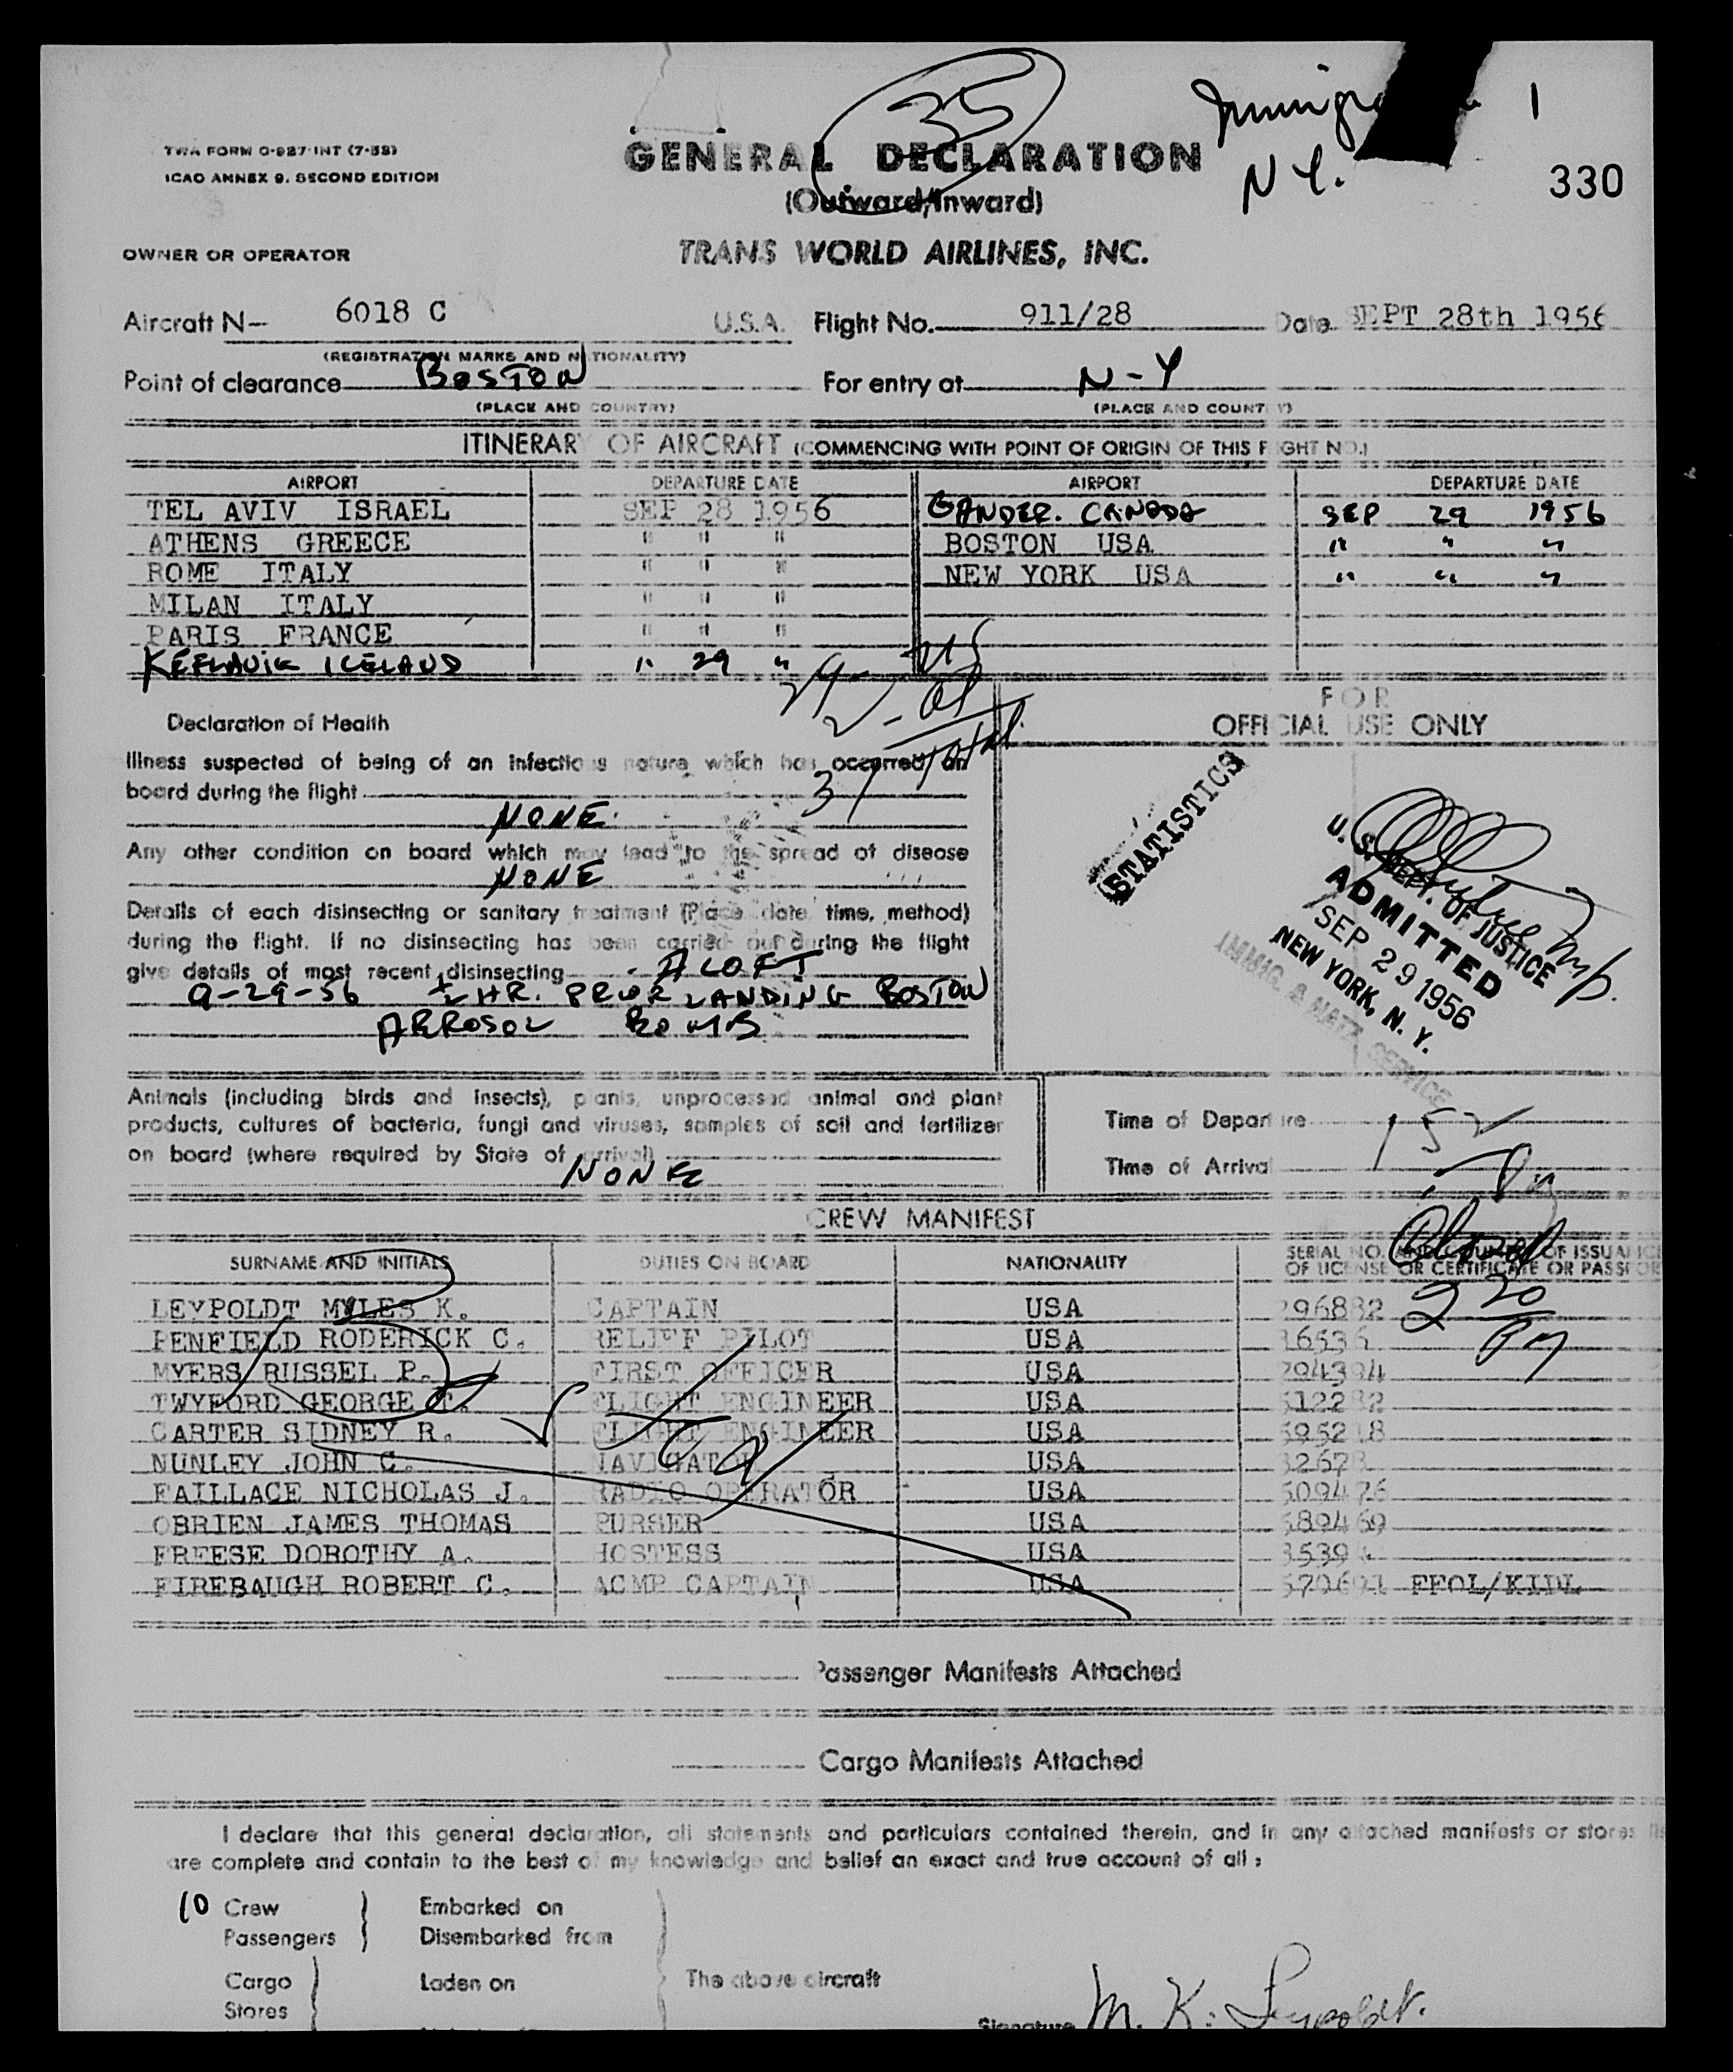 35
Immigra 1
N Y.
330
TWA FORM O-927-INT (7-58)
ICAO ANNEX 9. SECOND EDITION
GENERAL DECLARATION
(Outward/Inward)
OWNER OR OPERATOR TRANS WORLD AIRLINES, INC.
Aircraft N- 6018 C U.S.A. Flight No. 911/28 Date SEPT 28th 1956
(REGISTRATION MARKS AND NATIONALITY)
Point of clearance BOSTON For entry at N-Y
(PLACE AND COUNTRY) (PLACE AND COUNTRY)
ITINERARY OF AIRCRAFT (COMMENCING WITH POINT OF ORIGIN OF THIS FLIGHT NO.)
AIRPORT DEPARTURE DATE AIRPORT DEPARTURE DATE
TEL AVIV ISRAEL SEP 28 1956 GANDER. CANADA SEP 29 1956
ATHENS GREECE " " " BOSTON USA " " "
ROME ITALY " " " NEW YORK USA " " "
MILAN ITALY " " "
PARIS FRANCE " " "
KEFLAVIK ICELAND " 29 "
29- US
2-al
31 total
Declaration of Health
Illness suspected of being of an infectious nature which has occurred on
board during the flight
NONE.
Any other condition on board which may lead to the spread of disease
NONE
Details of each disinsecting or sanitary treatment (Place date time, method)
during the flight. If no disinsecting has been carried out during the flight
give details of most recent disinsecting ALOFT
9-29-56 ½ HR. PRIOR LANDING BOSTON
AEROSOL BOMB
FOR
OFFICIAL USE ONLY
STATISTICS
U. S. DEPT. OF JUSTICE
ADMITTED
SEP 29 1956
NEW YORK, N. Y.
IMMIG. & NATZ. SERVICE
Animals (including birds and insects), plants, unprocessed animal and plant
products, cultures of bacteria, fungi and viruses, samples of soil and fertilizer
on board (where required by State of arrival)
NONE
Time of Departure 152
Time of Arrival
CREW MANIFEST
SURNAME AND INITIALS DUTIES ON BOARD NATIONALITY SERIAL NO. AND COUNTRY OF ISSUANCE
OF LICENSE OR CERTIFICATE OR PASSPORT
LEYPOLDT MYLES K. CAPTAIN USA 296882
220
PM
PENFIELD RODERICK C. RELIEF PILOT USA
MYERS RUSSEL P. FIRST OFFICER USA
TWYFORD GEORGE T. FLIGHT ENGINEER USA
CARTER SIDNEY R. FLIGHT ENGINEER USA
NUNLEY JOHN C. NAVIGATOR USA
FAILLACE NICHOLAS J. RADIO OPERATOR USA
OBRIEN JAMES THOMAS PURSER USA
FREESE DOROTHY A. HOSTESS USA
FIREBAUGH ROBERT C. ACMP CAPTAIN USA
Passenger Manifests Attached
Cargo Manifests Attached
I declare that this general declaration, all statements and particulars contained therein, and in any attached manifests or stores lis
are complete and contain to the best of my knowledge and belief an exact and true account of all:
10 Crew Embarked on
Passengers Disembarked from
Cargo Laden on The above aircraft
Stores
Signature M. K. Leypoldt.